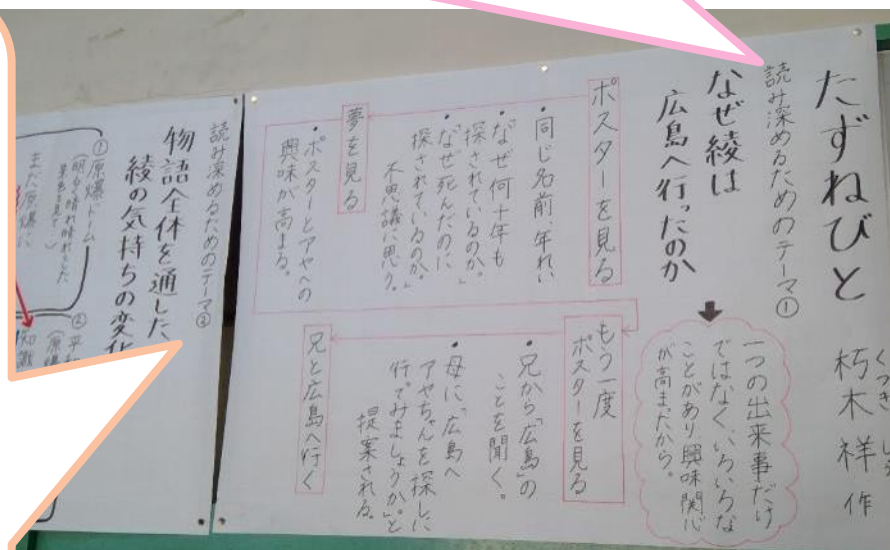 たずねびと
朽木祥 作
くつき しょう
読み深めるためのテーマ①
なぜ綾は
広島へ行ったのか
一つの出来事だけ
ではなく、いろいろな
ことがあり、興味関心
が高まったから。
ポスターを見る
・同じ名前、年れい
・「なぜ何十年も
探されているのか。」
・「なぜ死んだのに
探されているのか。」
不思議に思う。
夢を見る
・ポスターとアヤへの
興味が高まる。
もう一度
ポスターを見る
・兄から「広島」の
ことを聞く。
・母に「広島へ
アヤちゃんを探しに
行ってみましょうか。」と
提案される。
兄と広島へ行く
読み深めるためのテーマ②
物語全体を通した
綾の気持ちの変化
①原爆ドーム
(明るく晴れ晴れした
景色を見て…)
まだ原爆に
②平和
(原爆
知識